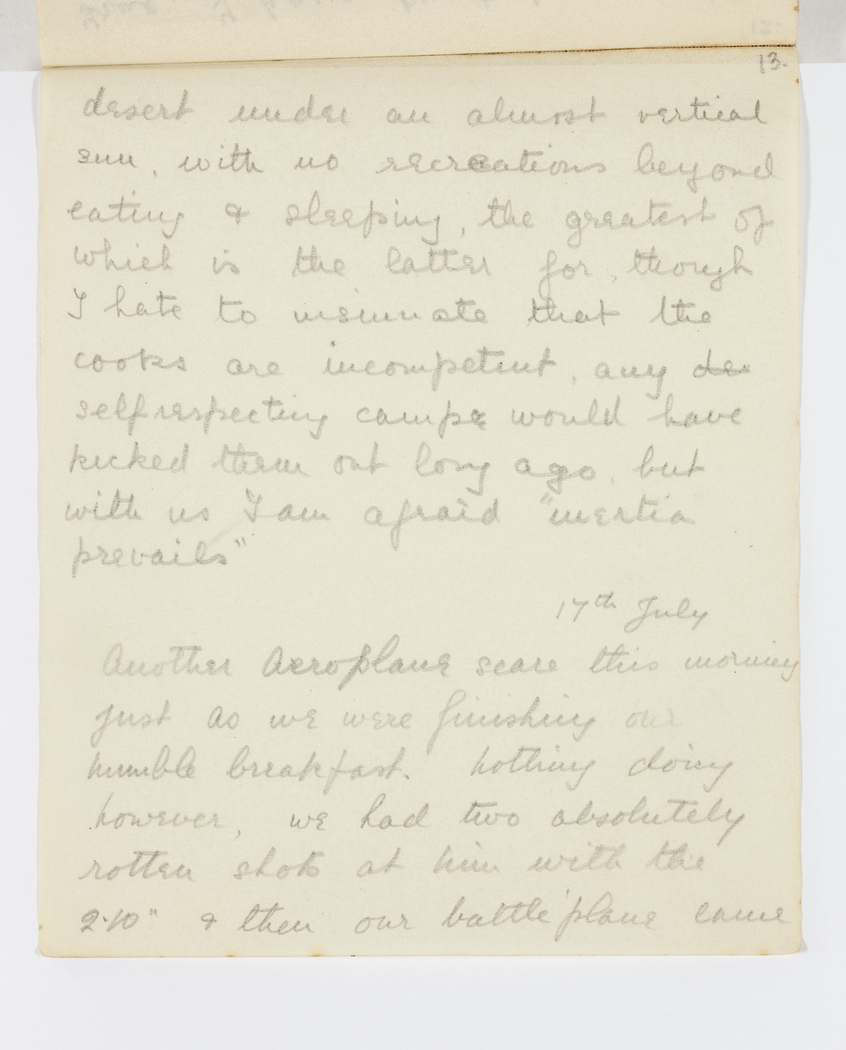 13.
desert under an almost vertical
sun, with no recreations beyond
eating & sleeping, the greatest of
which is the latter for, though
I hate to insinuate that the
cooks are incompetent, any de
selfrespecting camps would have
kicked them out long ago, but
with us I am afraid "inertia
prevails"
17th July
Another Aeroplane scare this morning
just as we were finishing our
humble breakfast. Nothing doing
however, we had two absolutely
rotten shots at him with the
2.10" & then our battle plane came